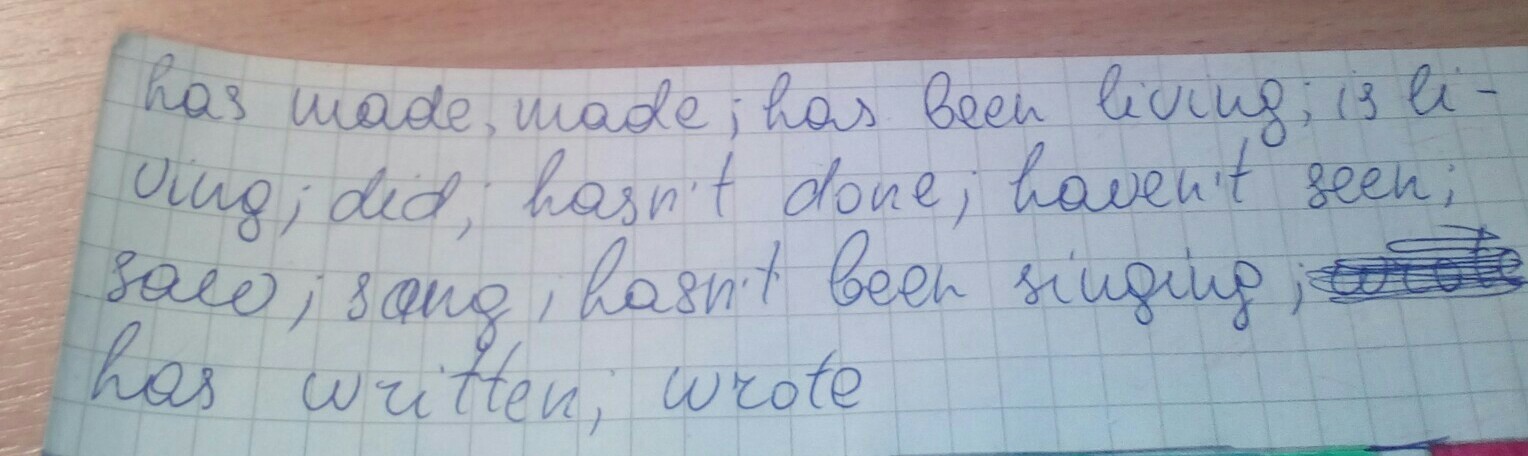 has made, made; has been living; is li-
ving; did; hasn't done; haven't seen;
saw; sang; hasn't been singing; wrote
has written; wrote